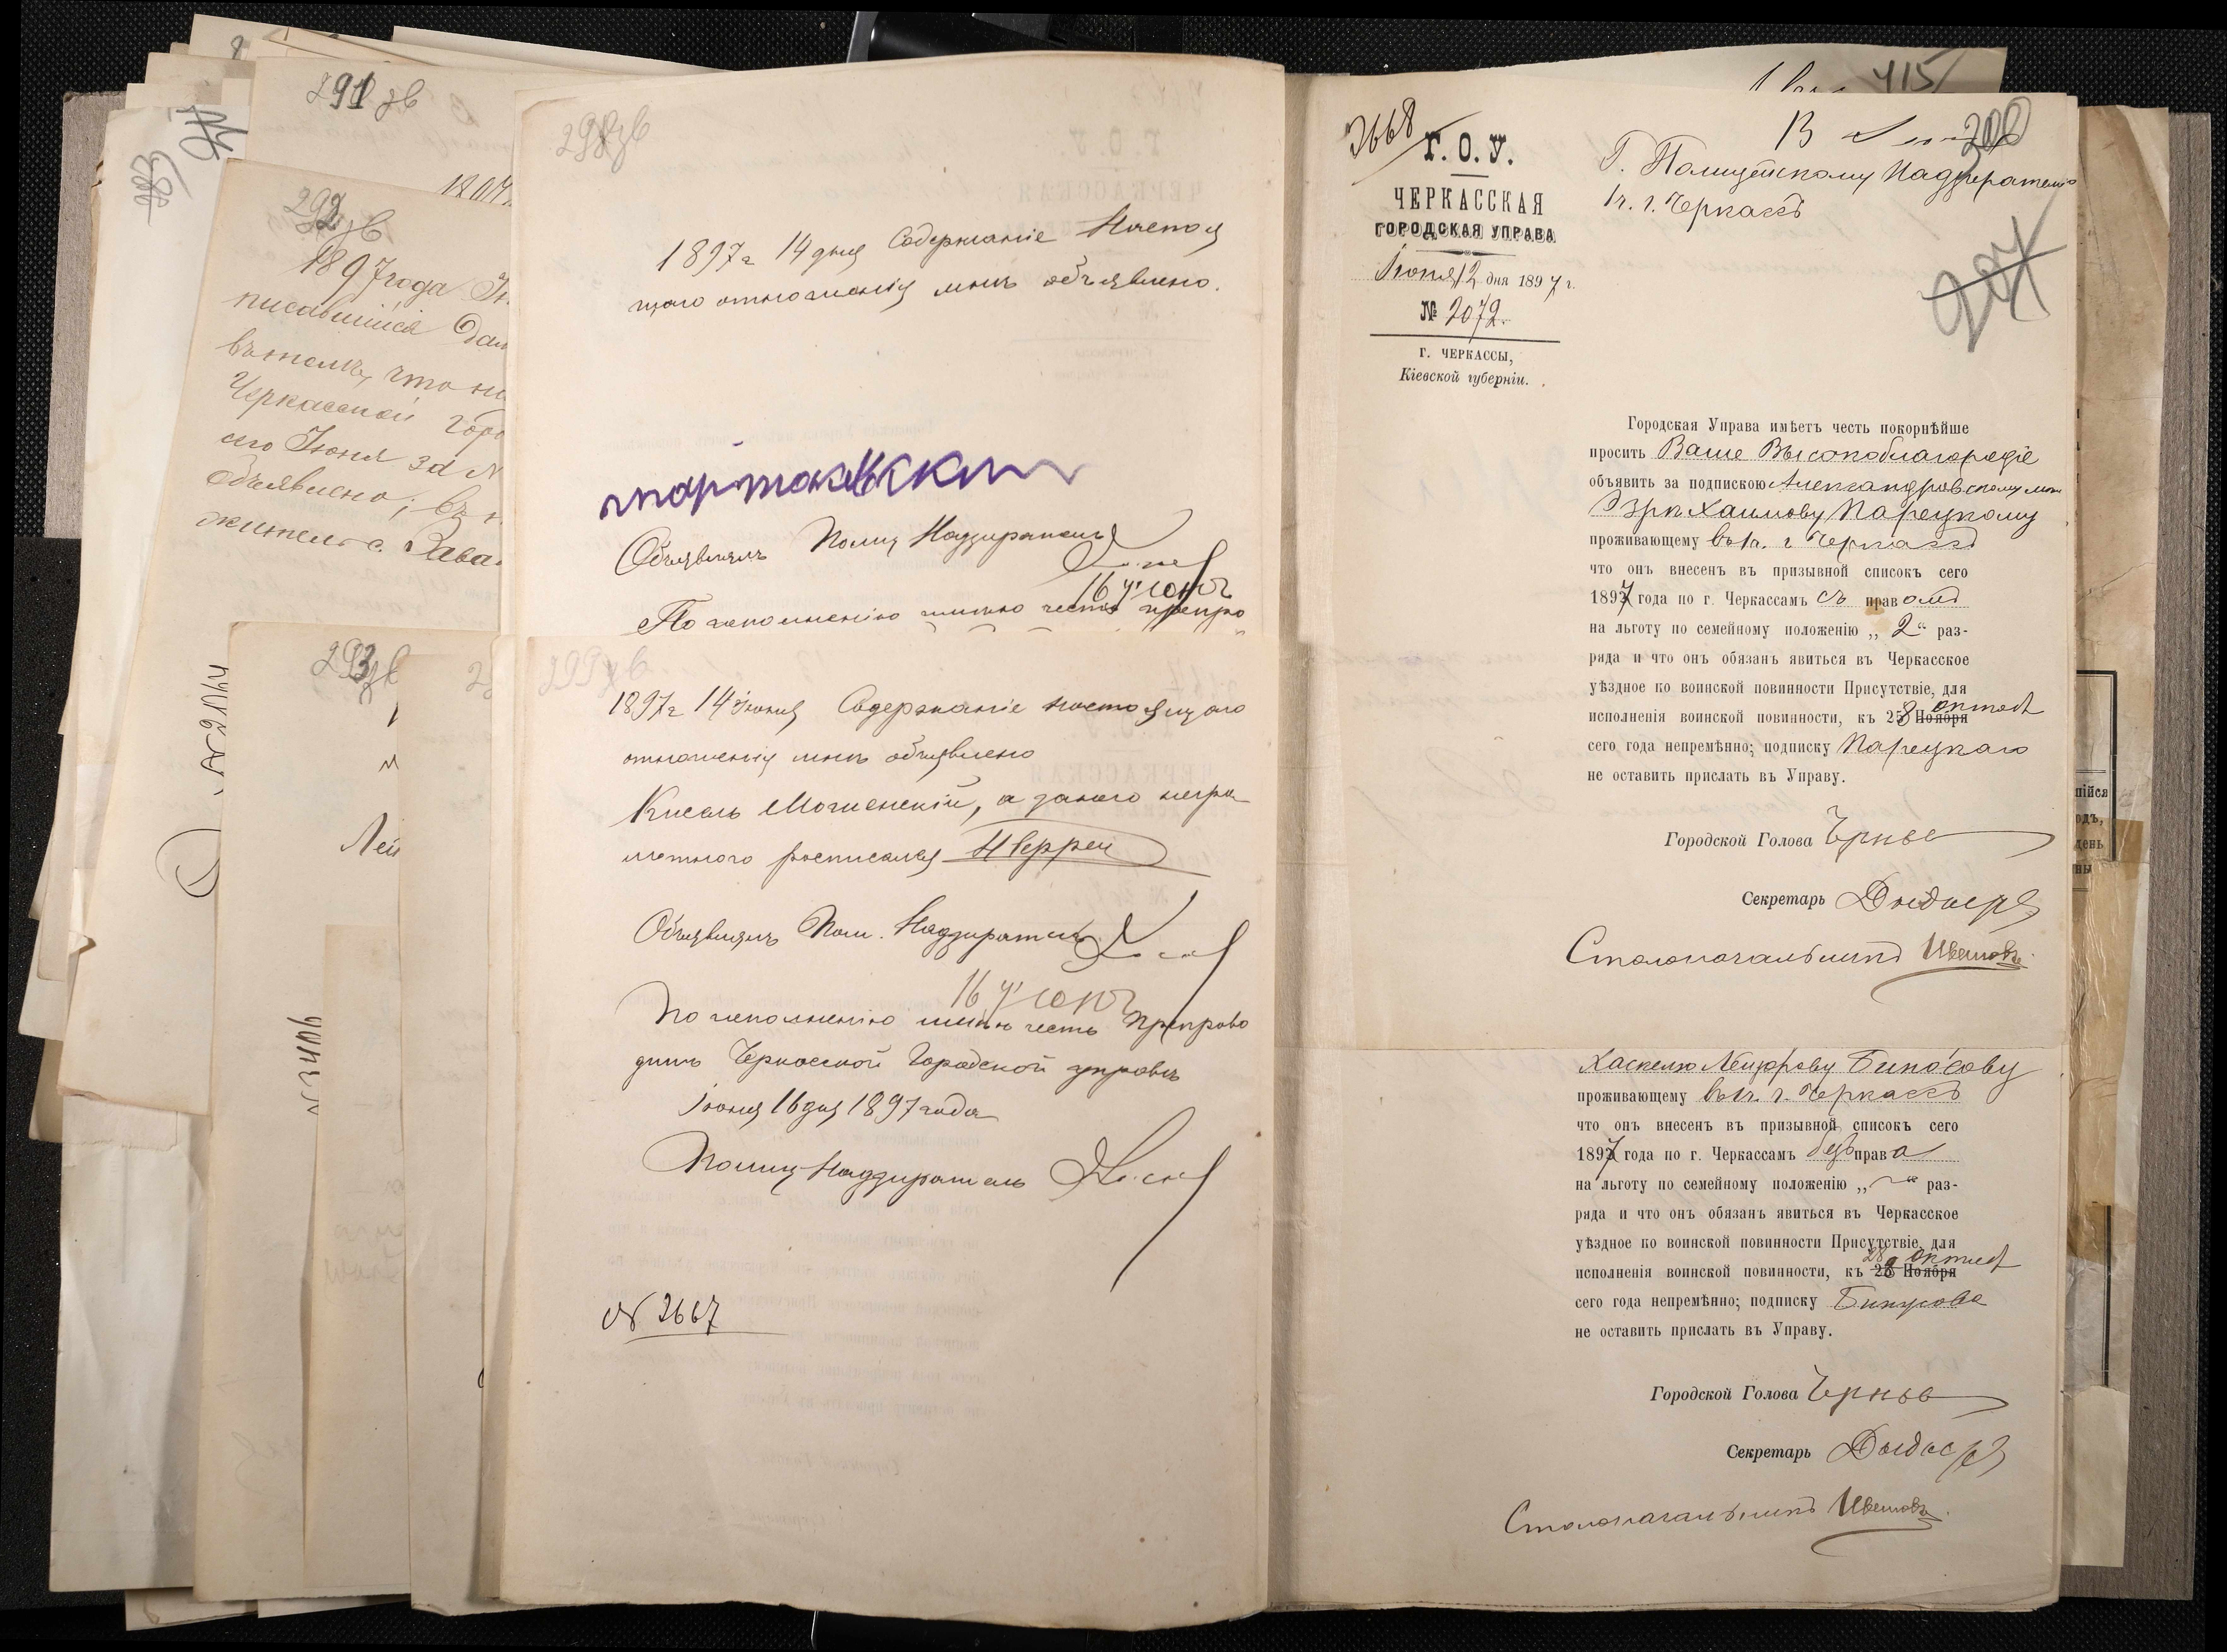 291 зв
292 зв
1897 года
писавшійся
въ томъ, что
Черкасской горо
сего Іюня за №
объявлено; въ
жительс.
293 зв
Лей
№ 2404
298 зв
1897 г 14 дня Содержаніе настоя
щаго отношенія мнѣ объявлено.
Объявилъ Полиц Надзиратель
16 Іюня
По исполненію имѣю честь препро
299 зв
1897 г 14 Іюня Содержаніе настоящаго
отношенія мнѣ объявлено
Кисель Могиленскій, а за него негра
мотнаго росписался
Объявилъ Пол. Надзиратель
16 Іюня
По исполненію имѣю честь препрово
дить Черкасской Городской управѣ
Іюня 16 дня 1897 года
Полиц Надзиратель
№ 2667
415
2668
300
Г. О. У.
ЧЕРКАССКАЯ
ГОРОДСКАЯ УПРАВА
Іюня 12 дня 1897 г.
№ 2072.
Г. ЧЕРКАССЫ,
Кіевской губерніи.
Г. Полицейскому Надзирателю
1 ч. г. Черкассъ
207
Городская Управа имѣетъ честь покорнѣйше
просить Ваше Высокоблагородіе
объявить за подпискою Александровскому мѣщ
Хаимову Парецкому
проживающему въ 1 ч. г Черкассъ
что онъ внесенъ въ призывной списокъ сего
1897 года по г. Черкассамъ съ правомъ
на льготу по семейному положенію „ 2 “ раз-
ряда и что онъ обязанъ явиться въ Черкасское
уѣздное по воинской повинности Присутствіе, для
исполненія воинской повинности, къ 28 Ноября октяб
сего года непремѣнно; подписку Парецкаго
не оставить прислать въ Управу.
Городской Голова
Секретарь
Столоначальникъ Ивановъ
Хаскелю Лейзорову Бинусову
проживающему въ 1 ч. г. Черкассъ
что онъ внесенъ въ призывной списокъ сего
1897 года по г. Черкассамъ безъ права
на льготу по семейному положенію „ — “ раз-
ряда и что онъ обязанъ явиться въ Черкасское
уѣздное по воинской повинности Присутствіе, для
исполненія воинской повинности, къ 28 Ноября 28 октяб
сего года непремѣнно; подписку Бинусова
не оставить прислать въ Управу.
Городской Голова
Секретарь
Столоначальникъ Ивановъ